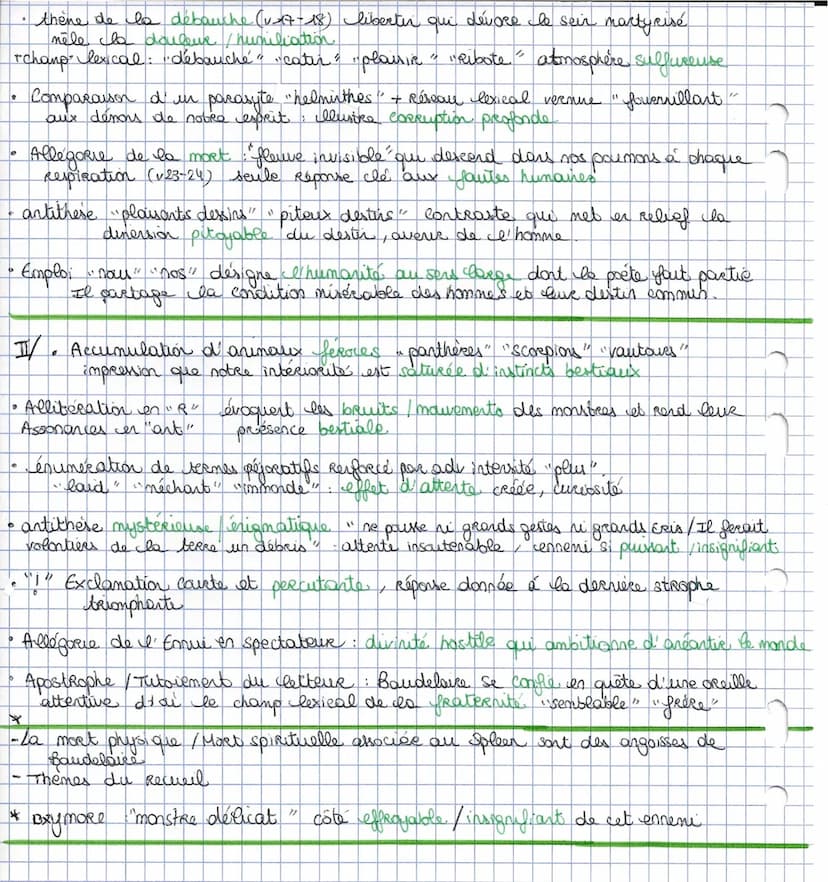 • thème de la débauche (v17-18) libertin qui dévore le sein martyrisé
mêle la douleur / humiliation
+champ lexical : "débauché" "catin" "plaisir" "ribote" atmosphère sulfureuse
• Comparaison d'un parasyte "helminthes" + Réseau lexical vermine "fourmillant"
aux démons de notre esprit : illustra corruption profonde
• Allégorie de la mort : "fleuve invisible" qui descend dans nos poumons à chaque
respiration (v23-24) seule réponse clé aux fautes humaines
• antithèse "plaisants dessins" "piteux destins" contraste qui met en relief la
dimension pitoyable du destin, avenir de l'homme.
• Emploi "nous" "nos" désigne l'humanité au sens large dont le poète fait partie
Il partage la condition misérable des hommes et leur destin commun.
II/ • Accumulation d'animaux féroces "panthères" "scorpions" "vautours"
impression que notre intériorité est saturée d'instincts bestiaux
• Allitération en "R" évoquent les bruits / mouvements des monstres et rend leur
Assonances en "ant" présence bestiale
• énumération de termes péjoratifs renforcé par adv intensité "plus".
"laid" "méchant" "immonde" : effet d'attente créée, curiosité
• antithèse mystérieuse / énigmatique " ne pousse ni grands gestes ni grands cris / Il ferait
volontiers de la terre un débris" : attente insoutenable, ennemi si puissant / insignifiant
• "!" Exclamation courte et percutante, réponse donnée à la dernière strophe
triomphante
• Allégorie de l'Ennui en spectateur : divinité hostile qui ambitionne d'anéantir le monde
• Apostrophe / Tutoiement du lecteur : Baudelaire se confie en quête d'une oreille
attentive d'où le champ lexical de la fraternité "semblable" "frère"
*
- La mort physique / Mort spirituelle associée au Spleen sont des angoisses de
Baudelaire
- Thèmes du recueil
* oxymore : "monstre délicat" côté effroyable / insignifiant de cet ennemi